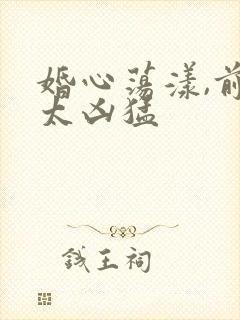 婚心荡漾,前
太凶猛
钱王祠